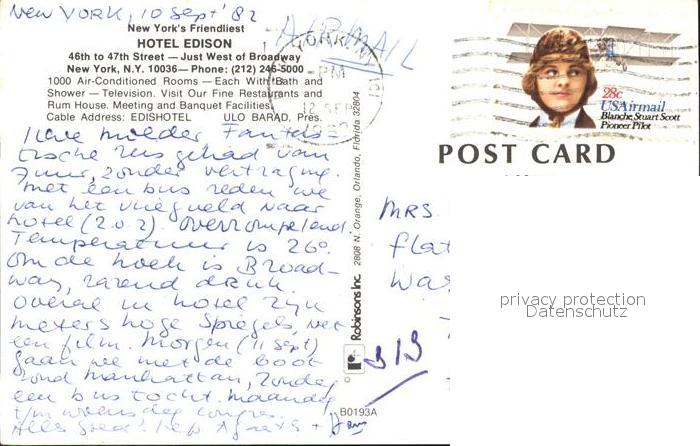 New York, 10 Sept '82
AIRMAIL
New York's Friendliest
HOTEL EDISON
46th to 47th Street — Just West of Broadway
New York, N.Y. 10036 — Phone: (212) 246-5000
1000 Air-Conditioned Rooms — Each With Bath and
Shower — Television. Visit Our Fine Restaurants and
Rum House. Meeting and Banquet Facilities.
Cable Address: EDISHOTEL ULO BARAD, Pres.
Lieve moeder Fantas-
tische reis gehad van
7 uur, zonder vertraging.
Met een bus reden we
van het vliegveld naar
hotel (z.o.z.). Overrompelend.
Temperatuur is 26°.
Om de hoek is Broad-
way, razend druk.
Overal in hotel zijn
meters hoge spiegels, net
een film. Morgen (11 sept)
gaan we met de boot
rond Manhattan, zondag
een bustocht. Maandag
t/m woensdag congres.
Alles goed!
28c
USAirmail
Blanche Stuart Scott
Pioneer Pilot
POST CARD
MRS.
flat
Was
privacy protection
Datenschutz
Robinsons Inc. 2808 N. Orange, Orlando, Florida 32804
B0193A